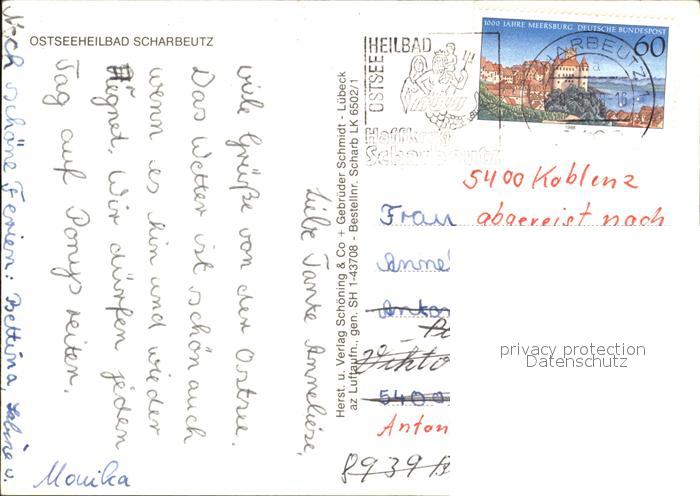 OSTSEEHEILBAD SCHARBEUTZ
Liebe Tante Anneliese,
viele Grüße von der Ostsee.
Das Wetter ist schön auch
wenn es hin und wieder
regnet. Wir dürfen jeden
Tag auf Ponys reiten.
Noch schöne Ferien: Bettina, Sabine u.
Monika
Herst. u. Verlag Schöning & Co + Gebrüder Schmidt - Lübeck
az Luftaufn., gen. SH 1-43708 - Bestellnr. Scharb LK 6502/1
OSTSEE
HEILBAD
Haffkrug
Scharbeutz
1000 JAHRE MEERSBURG DEUTSCHE BUNDESPOST
60
SCHARBEUTZ 1
a
5400 Koblenz
Frau abgereist nach
Anne
Anto
Vikto
5400
Anton
8939 B
privacy protection
Datenschutz